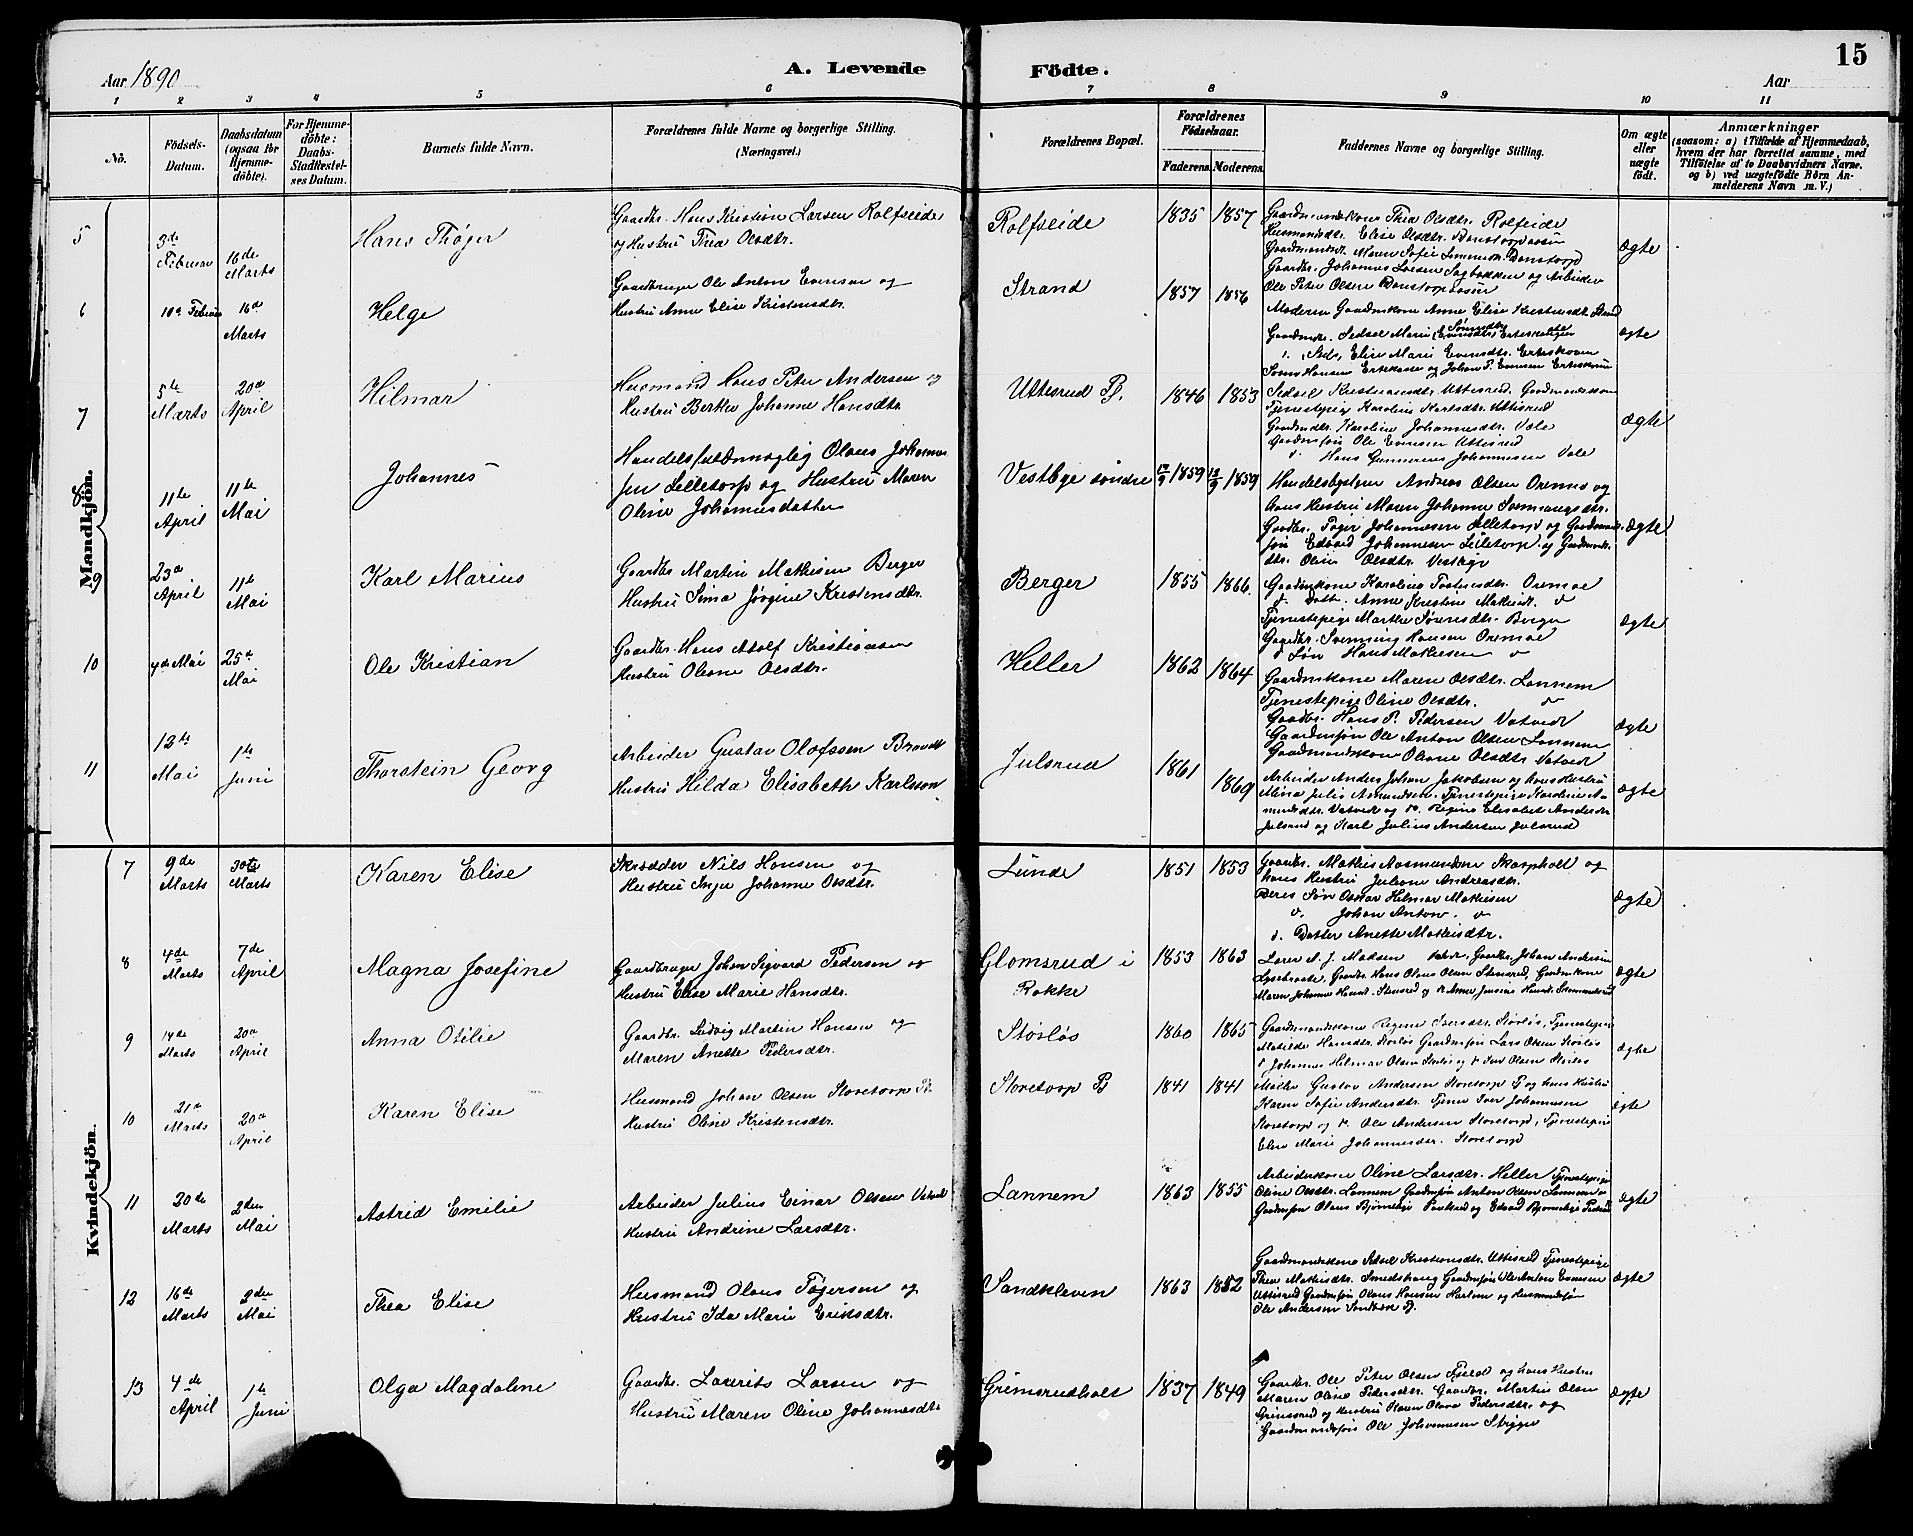 15
Aar 1890
A. Levende Födte.
Aar
1 2 3 4 5 6 7 8 9 10 11
No.
Födsels-
Datum.
Daabsdatum
(ogsaa for
Hjemme-
döbte).
For Hjemme-
döbte:
Daabs-
Stadfestel-
ses Datum.
Barnets fulde Navn.
Forældrenes fulde Navne og borgerlige Stilling.
(Næringsvei.)
Forældrenes Bopæl.
Forældrenes
Födselsaar.
Faderens. Moderens.
Faddernes Navne og borgerlige Stilling.
Om ægte
eller
uægte
födt.
Anmærkninger
(saasom: a) i Tilfælde af Hjemmedaab,
hvem der har forrettet samme, med
Tilföielse af to Daabsvidners Navne.
og b) ved uægtefödte Börn An-
melderens Navn m. V.)
Mandkjön.
5
3de Februar
16de Marts
Hans Thøger
Gaardbr. Hans Kristian Larsen Rolfseide
og Hustru Thea Olsdtr.
Rolfseide
1835 1857
Gaardmandskone Thea Olsdtr. Rolfseide
Husmandsdtr. Elise Olsdtr.
Gaardmandsdtr. Maren Sofie
Gaardbr. Johannes Larsen Sagbakken og Arbeider
Ole Peter Olsen
Ægte
6
10de Februar
16de Marts
Helge
Gaardbruger Ole Anton Evensen og
Hustru Anne Elise Kristensdtr.
Strand
1857 1856
Moderen Gaardmkone Anne Elise Kristensdtr. Strand
Gaardmdtr. Sedsel Marie Evensdtr.
Elise Marie Evensdtr.
Hansen og Johan P. Evensen
Ægte
7
5te Marts
20de April
Hilmar
Husmand Hans Peter Andersen og
Hustru Berthe Johanne Hansdtr.
Uttisrud P.
1846 1853
Sedsel Kristiansdtr. Uttisrud, Gaardmandskone
Tjenestepige Karoline Karlsdtr. Uttisrud
Gaardmdtr. Karoline Johannesdtr. Vale
Gaardmsøn Ole Evensen Uttisrud
Hans Gunnerius Johannesen Vale
Ægte
8
11te April
11te Mai
Johannes
Handelsfuldmægtig Olaus Johannes-
sen Lilletorp og Hustru Maren
Oline Johannesdatter
Vestbye søndre
1859 1859
Handelsbestyrer Andreas Olsen Oremo og
hans Hustru Maren Johanne Svenningsdtr.
Gaardbr. Tøger Johannesen Lilletorp og Gaardmands-
søn Edvard Johannesen Lilletorp og Gaardmands-
dtr. Oline Olsdtr. Vestbye
Ægte
9
23de April
11te Mai
Karl Marius
Gaardbr. Martin Mathisen Berger
Hustru Sina Jørgine Kristensdtr.
Berger
1855 1866.
Gaardmkone Karoline Oremoe
Datter Anne Kristine Mathisdtr.
Tjenestepige Marthe Sørensdtr. Berger
Gaardbr. Svenning Hansen Oremoe
Søn Hans Mathisen
Ægte
10
4de Mai
25de Mai
Ole Kristian
Gaardbr. Hans Adolf Kristiansen
Hustru Oleane Olsdtr.
Heller
1862 1864
Gaardmkone Maren Olsdtr. Lannem
Tjenestepige Oline Olsdtr.
Gaardbr. Hans P. Pedersen Vatvedt
Gaardmsøn Ole Anton Olsen Lannem
Gaardmandskone Oleane Olsdtr. Vatvedt
Ægte
11
12te Mai
1te Juni
Thorstein Georg
Arbeider Gustav Olofssen Brandt
Hustru Hilda Elisabeth Karlsson
Julsrud
1861 1869
Arbeider Anders Johan Jakobsen og hans Hustru
Mina Julie Amundsen. Tjenestepige Karoline A-
mundsdtr. Vatvedt og Regine Elisabet Andersdtr.
Julsrud og Karl Julius Andersen Julsrud
Ægte
Kvindekjön.
7
9de Marts
30te Marts
Karen Elise
Skrædder Nils Hansen og
Hustru Inger Johanne Olsdtr.
Lunde
1851 1853
Gaardbr. Mathis Aasmundsen Skarpholt og
hans Hustru Juliane Andreasdtr.
Deres Søn Oskar Hilmar Mathisen
Johan Anton
Datter Anette Mathisdtr.
Ægte
8
4de Marts
7de April
Magna Josefine
Gaardbruger Johan Sigvard Pedersen og
Hustru Elise Marie Hansdtr.
Glomsrud i
Rokke
1853 1863
Lærer A. J. Madsen Gaardbr. Johan Andersen
Gaardbr. Hans Olaus Olsen Stensrud, Gaardmkone
Maren Johanne Hansdtr. Stensrud og Anne Jensine Hansdtr.
Ægte
9
14de Marts
20de April
Anna Otilie
Gaardbr. Ludvig Martin Hansen og
Maren Anette Pedersdtr.
Størløs
1860 1865
Gaardmandskone Regine Iversdtr. Størløs, Tjenestepige
Matilde Hansdtr. Størløs Gaardmsøn Lars Olsen Størløs
Johannes Hilmar Olsen Størløs og Olsen Størløs
Ægte
10
21de Marts
20de April
Karen Elise
Husmand Johan Olsen Storetorp P.
Hustru Oline Kristensdtr.
Storetorp P
1841 1841
Gustav Andersen Storetorp P og hans Hustru
Karen Sofie Andersdtr. Tjener Iver Johannesen
Storetorp og Ole Andersen Storetorp, Tjenestepige
Elen Marie Johannesdtr. Storetorp
Ægte
11
20de Marts
2den Mai
Astrid Emilie
Arbeider Julius Einar Olsen
Hustru Andrine Larsdtr.
Lannem
1863 1855
Arbeiderkone Oline Larsdtr. Heller Tjenestepige
Oline Olsdtr. Lannem Gaardmsøn Anton Olsen Lannem
Gaardmsøn Olaus og Edvard
Ægte
12
16de Marts
2den Mai
Thea Elise
Husmand Olaus Tøgersen og
Hustru Ida Marie Eriksdtr.
Sandkleven
1863 1852
Gaardmandskone Sedsel Kristiansdtr. Uttisrud Tjenestepige
Thea Mathisdtr. Smedshaug Gaardmsøn Ole Anton Evensen
Uttisrud Gaardmsøn Olaus Hansen og Husmandssøn
Ole Andersen
Ægte
13
4de April
1te Juni
Olga Magdalene
Gaardbr. Laurits Larsen og
Hustru Maren Oline Johannesdtr.
Grimsrudholt
1837 1849
Gaardbr. Ole Peter Olsen Fjeld og hans Hustru
Maren Oline Pedersdtr. Gaardbr. Martin Olsen
Grimsrud og Hustru Karen Olava Pedersdtr. og
Gaardmandssøn Ole Johannesen Strigger
Ægte